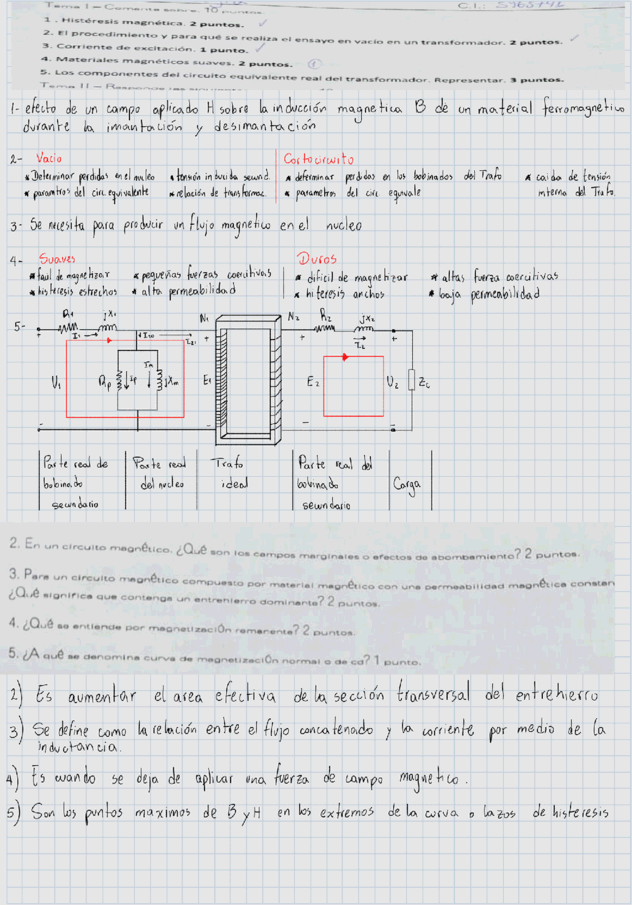 Tema I – Comente sobre. 10 puntos
C.I.:
1. Histéresis magnética. 2 puntos.
2. El procedimiento y para qué se realiza el ensayo en vacío en un transformador. 2 puntos.
3. Corriente de excitación. 1 punto.
4. Materiales magnéticos suaves. 2 puntos.
5. Los componentes del circuito equivalente real del transformador. Representar. 3 puntos.
Tema II –
1- efecto de un campo aplicado H sobre la inducción magnetica B de un material ferromagnetivo
durante la imantación y desimantación
2- Vacio
* Determinar perdidas en el nucleo * tensión inducida secund.
* parametros del circ. equivalente * relación de transformac.
Cortocircuito
* determinar perdidas en los bobinados del Trafo * caida de tensión
* parametros del circ equivale interna del Trafo.
3- Se necesita para producir un flujo magnetico en el nucleo
4- Suaves
* facil de magnetizar * pequeñas fuerzas coercitivas
* histeresis estrechos * alta permeabilidad
Duros
* dificil de magnetizar * altas fuerza coercitivas
* histeresis anchos * baja permeabilidad
5- R1 jX1 N1 N2 R2 jX2
I1 I2
U1 Rp Ip Im jXm E1 E2 U2 Zc
Parte real de
bobinado
secundario
Parte real
del nucleo
Trafo
ideal
Parte real del
bobinado
secundario
Carga
2. En un circuito magnético. ¿Qué son los campos marginales o efectos de abombamiento? 2 puntos.
3. Para un circuito magnético compuesto por material magnético con una permeabilidad magnética constan
¿Qué significa que contenga un entrehierro dominante? 2 puntos.
4. ¿Qué se entiende por magnetización remanente? 2 puntos
5. ¿A qué se denomina curva de magnetización normal o de cd? 1 punto.
2) Es aumentar el area efectiva de la sección transversal del entrehierro
3) Se define como la relación entre el flujo concatenado y la corriente por medio de la
inductancia.
4) Es cuando se deja de aplicar una fuerza de campo magnetico.
5) Son los puntos maximos de B y H en los extremos de la curva o lazos de histeresis